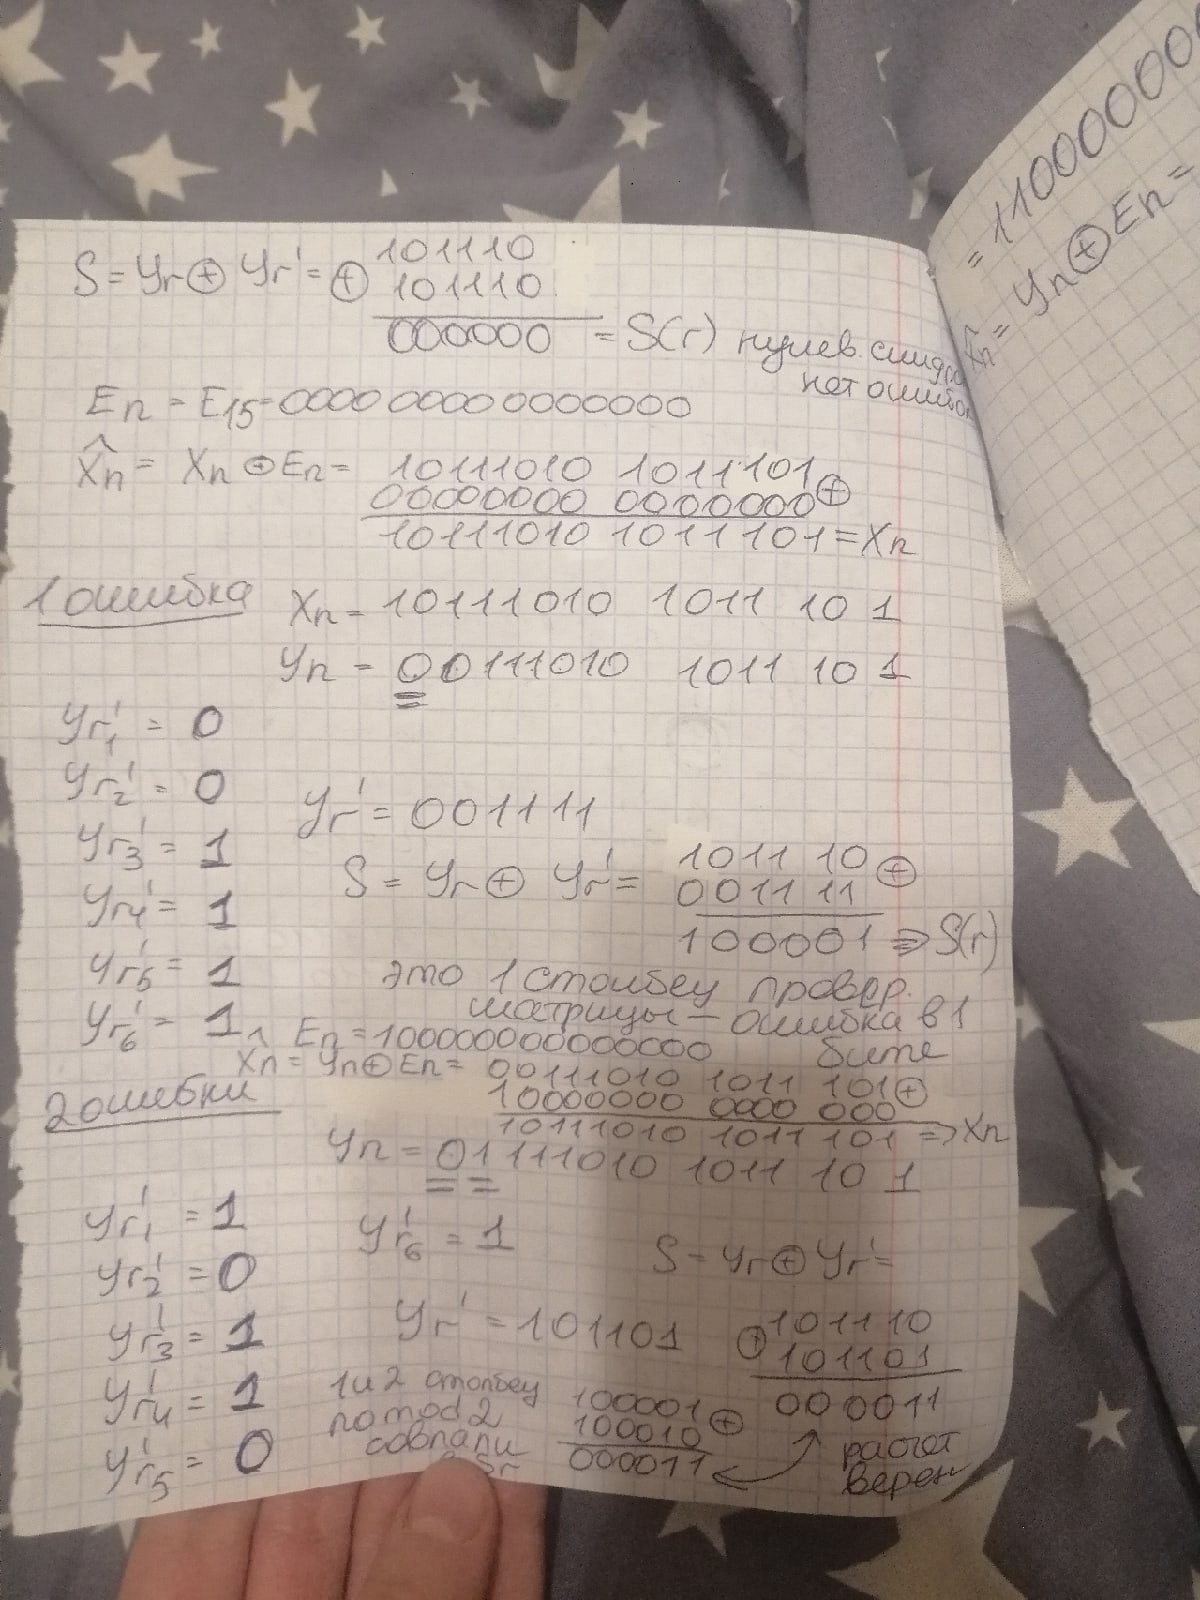 S = Yr ⊕ Yr' = ⊕ 101110
101110
000000 = S(r) нулев. синдр
нет ошибок
En = E15 = 0000 0000 0000000
X̂n = Xn ⊕ En = 10111010 1011101 ⊕
00000000 0000000
10111010 1011101 = Xn
1 ошибка
Xn = 10111010 1011 10 1
Yn = 00111010 1011 10 1
Yr1' = 0
Yr2' = 0
Yr3' = 1
Yr4' = 1
Yr5' = 1
Yr6' = 1
Yr' = 001111
S = Yr ⊕ Yr' = 1011 10 ⊕
0011 11
100001 => S(r)
это 1 столбец провер.
матрицы – ошибка в 1
бите
En = 100000000000000
X̂n = Yn ⊕ En = 00111010 1011 101 ⊕
10000000 0000 000
10111010 1011 101 => Xn
2 ошибки
Yn = 01111010 1011 10 1
Yr1' = 1
Yr2' = 0
Yr3' = 1
Yr4' = 1
Yr5' = 0
Yr6' = 1
Yr' = 101101
S = Yr ⊕ Yr' =
⊕ 101110
101101
000011
1 и 2 столбец
по mod 2
совпали
Sr
100001 ⊕
100010
000011
расчёт
верен
= 11000000
X̂n = Yn ⊕ En =